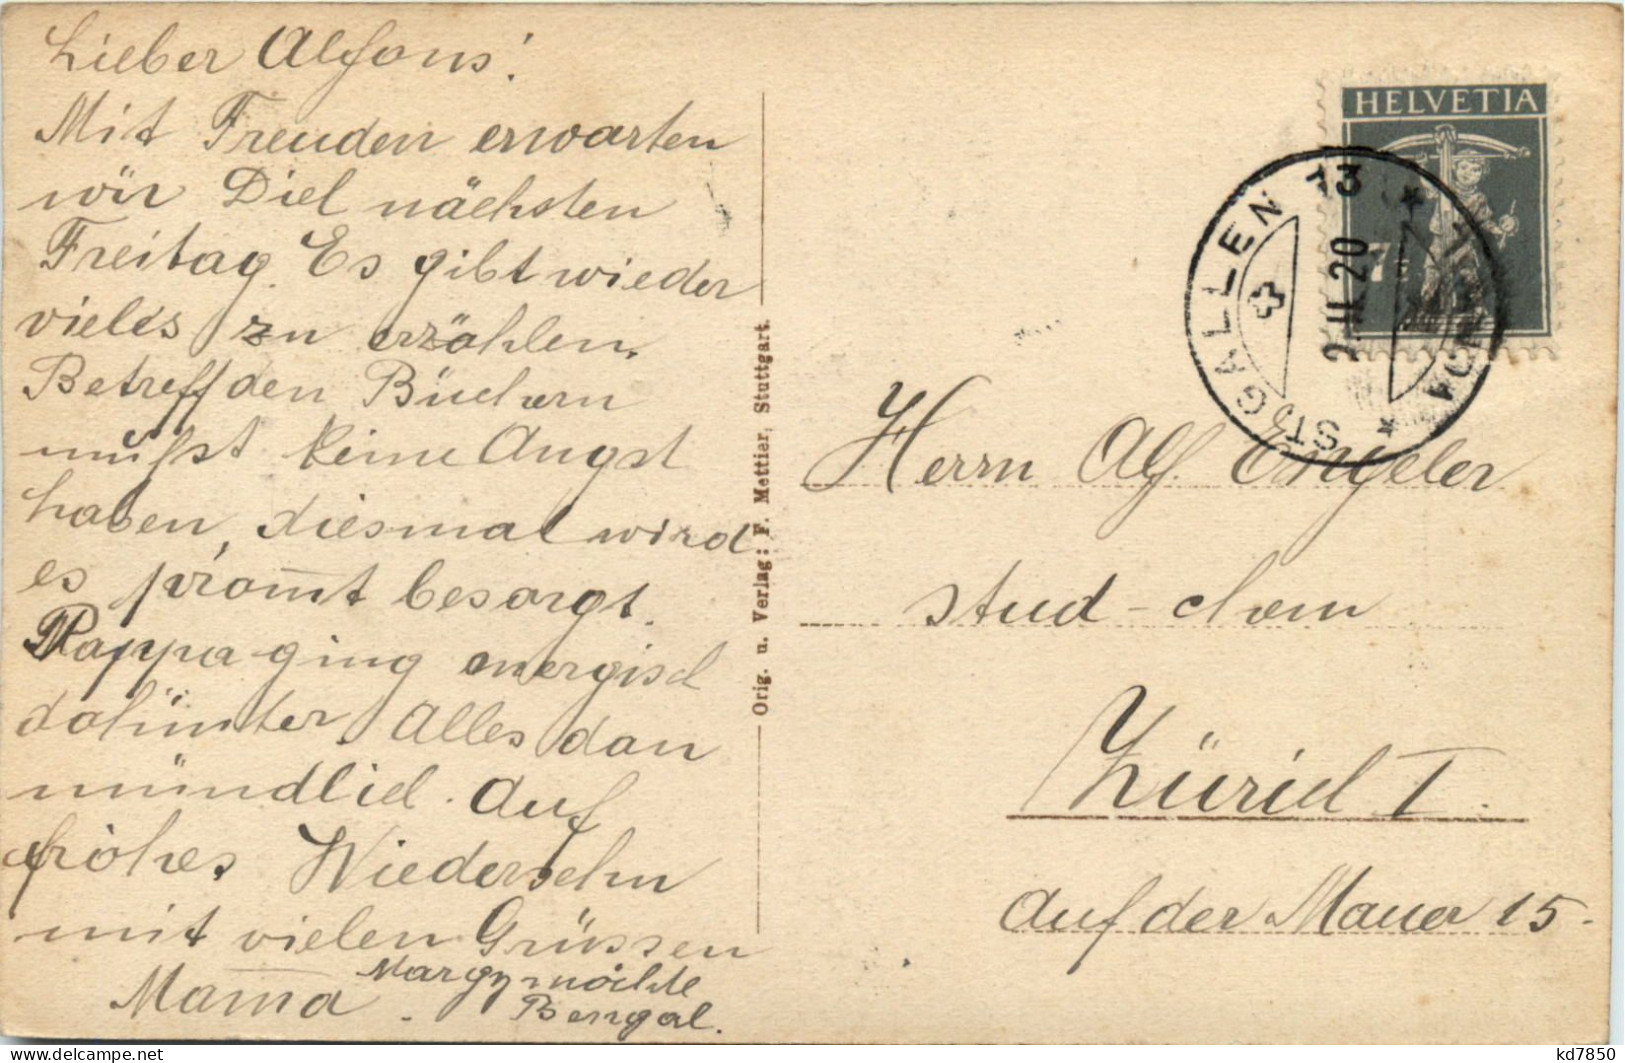 Lieber Alfons!
Mit Freuden erwarten
wir Diel nächsten
Freitag. Es gibt wieder
vieles zu erzählen.
Betreff den Büchern
mußst keine Angst
haben, diesmal wird
es prom̄t besorgt.
Pappa ging energisch
dahinter. Alles dan
mündlich. Auf
frohes Wiedersehn
mit vielen Grüssen
Mam̄a.
Margy möchte
Bengal.
Orig. u. Verlag: F. Mettier, Stuttgart.
HELVETIA
7
ST. GALLEN 13
2.II.20
Herrn Alf. Engeler
stud - chem
Zürich I.
Auf der Mauer 15.
kd7850